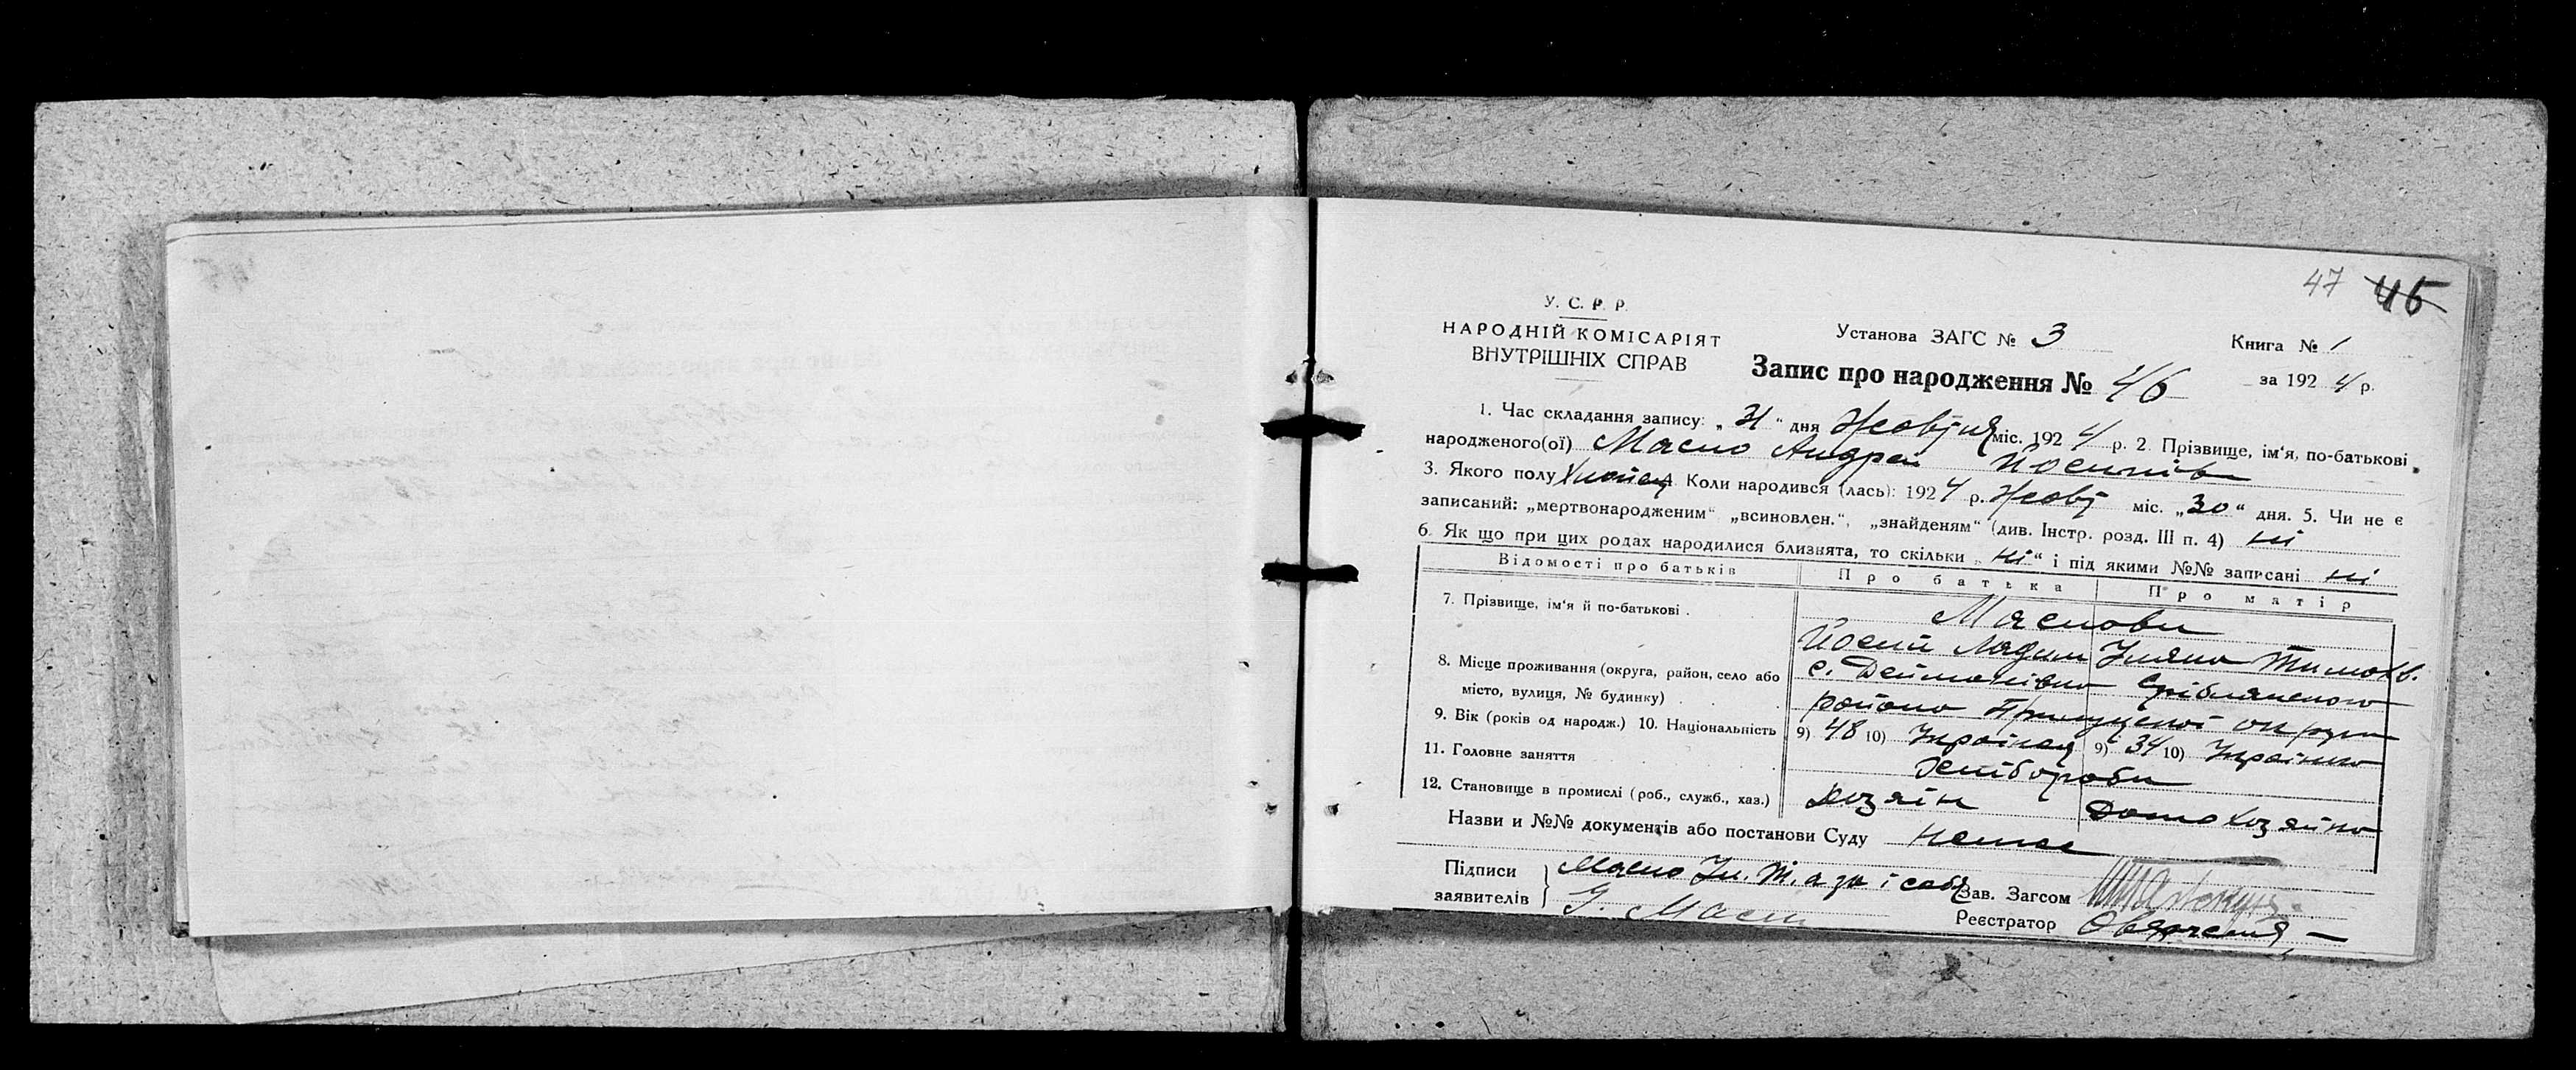 47 45
У. С. Р. Р.
НАРОДНІЙ КОМІСАРІЯТ
ВНУТРІШНІХ СПРАВ
Установа ЗАГС № 3
Книга № 1
Запис про народження № 46
за 1924 р.
1. Час складання запису: „31“ дня Жовтня міс. 1924 р. 2. Прізвище, ім'я, по-батькові
народженого(ої) Масло Андрей Йосипів
3. Якого полу Хлопец 4. Коли народився (лась): 1924 р. Жовт міс. „30“ дня. 5. Чи не є
записаний: „мертвонародженим“ „всиновлен.“, „знайденям“ (див. Інстр. розд. III п. 4) ні
6. Як що при цих родах народилися близнята, то скільки „ні“ і під якими №№ записані ні
Відомості про батьків Про батька Про матір
7. Прізвище, ім'я й по-батькові . Маслови
Йосип Уляна Тимохв.
8. Місце проживання (округа, район, село або с. Дейманівка Сріблянського
місто, вулиця, № будинку) . . района Прилуцької округи
9. Вік (років од народж.) 10. Національність 9) 48 10) Українец 9) 34 10) Українка
11. Головне заняття Хлібороби
12. Становище в промислі (роб., служб., хаз.) Хозяін Домохозяйка
Назви и №№ документів або постанови Суду Немає
Підписи
заявителів
Масло Ул. Т. а за і себя
Зав. Загсом
Реєстратор